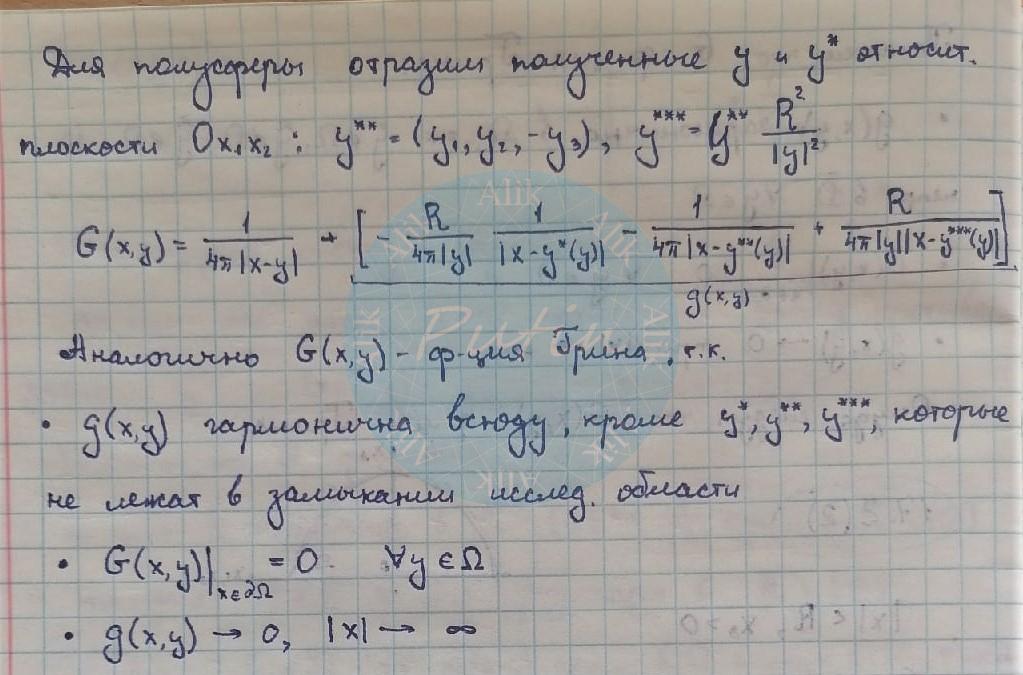 Для полусферы отразим полученные y и y* относит.
плоскости Ox₁x₂ : y** = (y₁, y₂, -y₃), y*** = y** R²/|y|²
G(x,y) = 1/(4π|x-y|) + [- R/(4π|y|) 1/|x-y*(y)| - 1/(4π|x-y**(y)|) + R/(4π|y||x-y***(y)|)]
g(x,y).
Аналогично G(x,y) - ф-ция Грина, т.к.
• g(x,y) гармонична всюду, кроме y*, y**, y***, которые
не лежат в замыкании исслед. области
• G(x,y)|x∈∂Ω = 0 ∀y∈Ω
• g(x,y) → 0, |x| → ∞
Alik
Putin